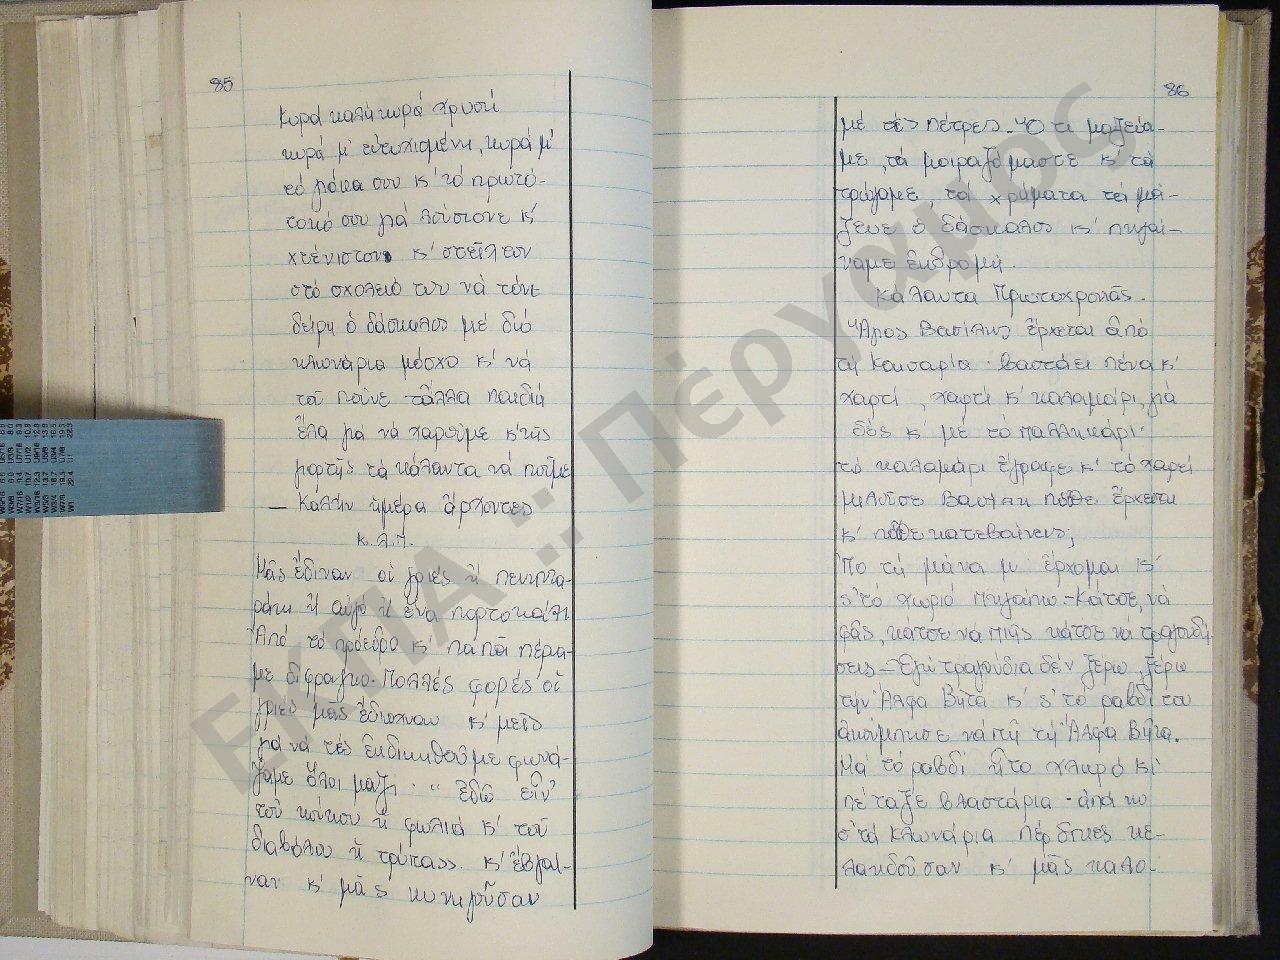 85
Κυρά καλή κυρά χρυσή
κυρά μ' εὐτυχισμένη, κυρά μ'
τό γιόκα σου κ' τό πρωτό-
τοκό σου γιά λούστονε κ'
χτένιστον κ' στεῖλτον
στό σχολειό του νὰ τόνε
δείρη ὁ δάσκαλος μέ διό
κλωνάρια μόσχο κ' νά
τοῦ ποῦνε τἄλλα παιδιά
ἔλα για νὰ χαροῦμε κ' τῆς
γιορτῆς τά κάλαντα νά ποῦμε
— Καλήν ἡμέρα ἄρχοντες
κ.λ.π.
Μᾶς ἔδιναν οἱ γριές ἤ πενηντα-
ράκι ἤ αὐγό ἤ ἕνα πορτοκάλι
Ἀπό τό πρόεδρο κ' παπᾶ πέρνα-
με δίφραγκο. Πολλές φορές οἱ
γριές μᾶς ἔδιωχναν κ' μεῖς
γιά νά τές ἐκδικηθοῦμε φωνά-
ζαμε ὅλοι μαζί· "ἐδῶ εἶν'
τοῦ κούκου ἡ φωλιά κ' τοῦ
διαβόλου ἡ τρύπα». κ' ἔβγαι-
ναν κ' μᾶς κυνηγοῦσαν
86
μέ τές πέτρες. Ὅ τι μαζεύα-
με, τά μοιραζόμαστε κ' τά
τρώγαμε, τά χρήματα τά μά-
ζευε ὁ δάσκαλος κ' πηγαί-
ναμε ἐκδρομή.
Κάλαντα Πρωτοχρονιᾶς.
Ἅγιος Βασίλης ἔρχεται ἀπό
τή Καισαρία· βαστάει πένα κ'
χαρτί, χαρτί κ' καλαμάρι, γιά
δές κ' με τό παλληκάρι·
τό καλαμάρι ἔγραφε κ' τό χαρτί
μιλοῦσε Βασίλη πόθε ἔρχεσαι
κ' πόθε κατεβαίνεις;
Πό τή μάνα μ' ἔρχομαι κ'
ς' τό χωριό πηγαίνω.-Κάτσε, νά
φᾶς, κάτσε νά πιῆς κάτσε νά τραγουδή
σεις — Ἐγώ τραγούδια δέν ξέρω, ξέρω
τήν Ἄλφα Βῆτα κ' ς' τό ραβδί του
ἀκούμπησε νά πῆ τή Ἄλφα Βῆτα.
Μά τό ραβδί ἦτο χλωρό κι'
πέταξε βλαστάρια· ἀπά κω
σ'τά κλωνάρια πέρδικες κε-
λαηδοῦσαν κ' μᾶς καλο-
ΕΚΠΑ :: Πέργαμος